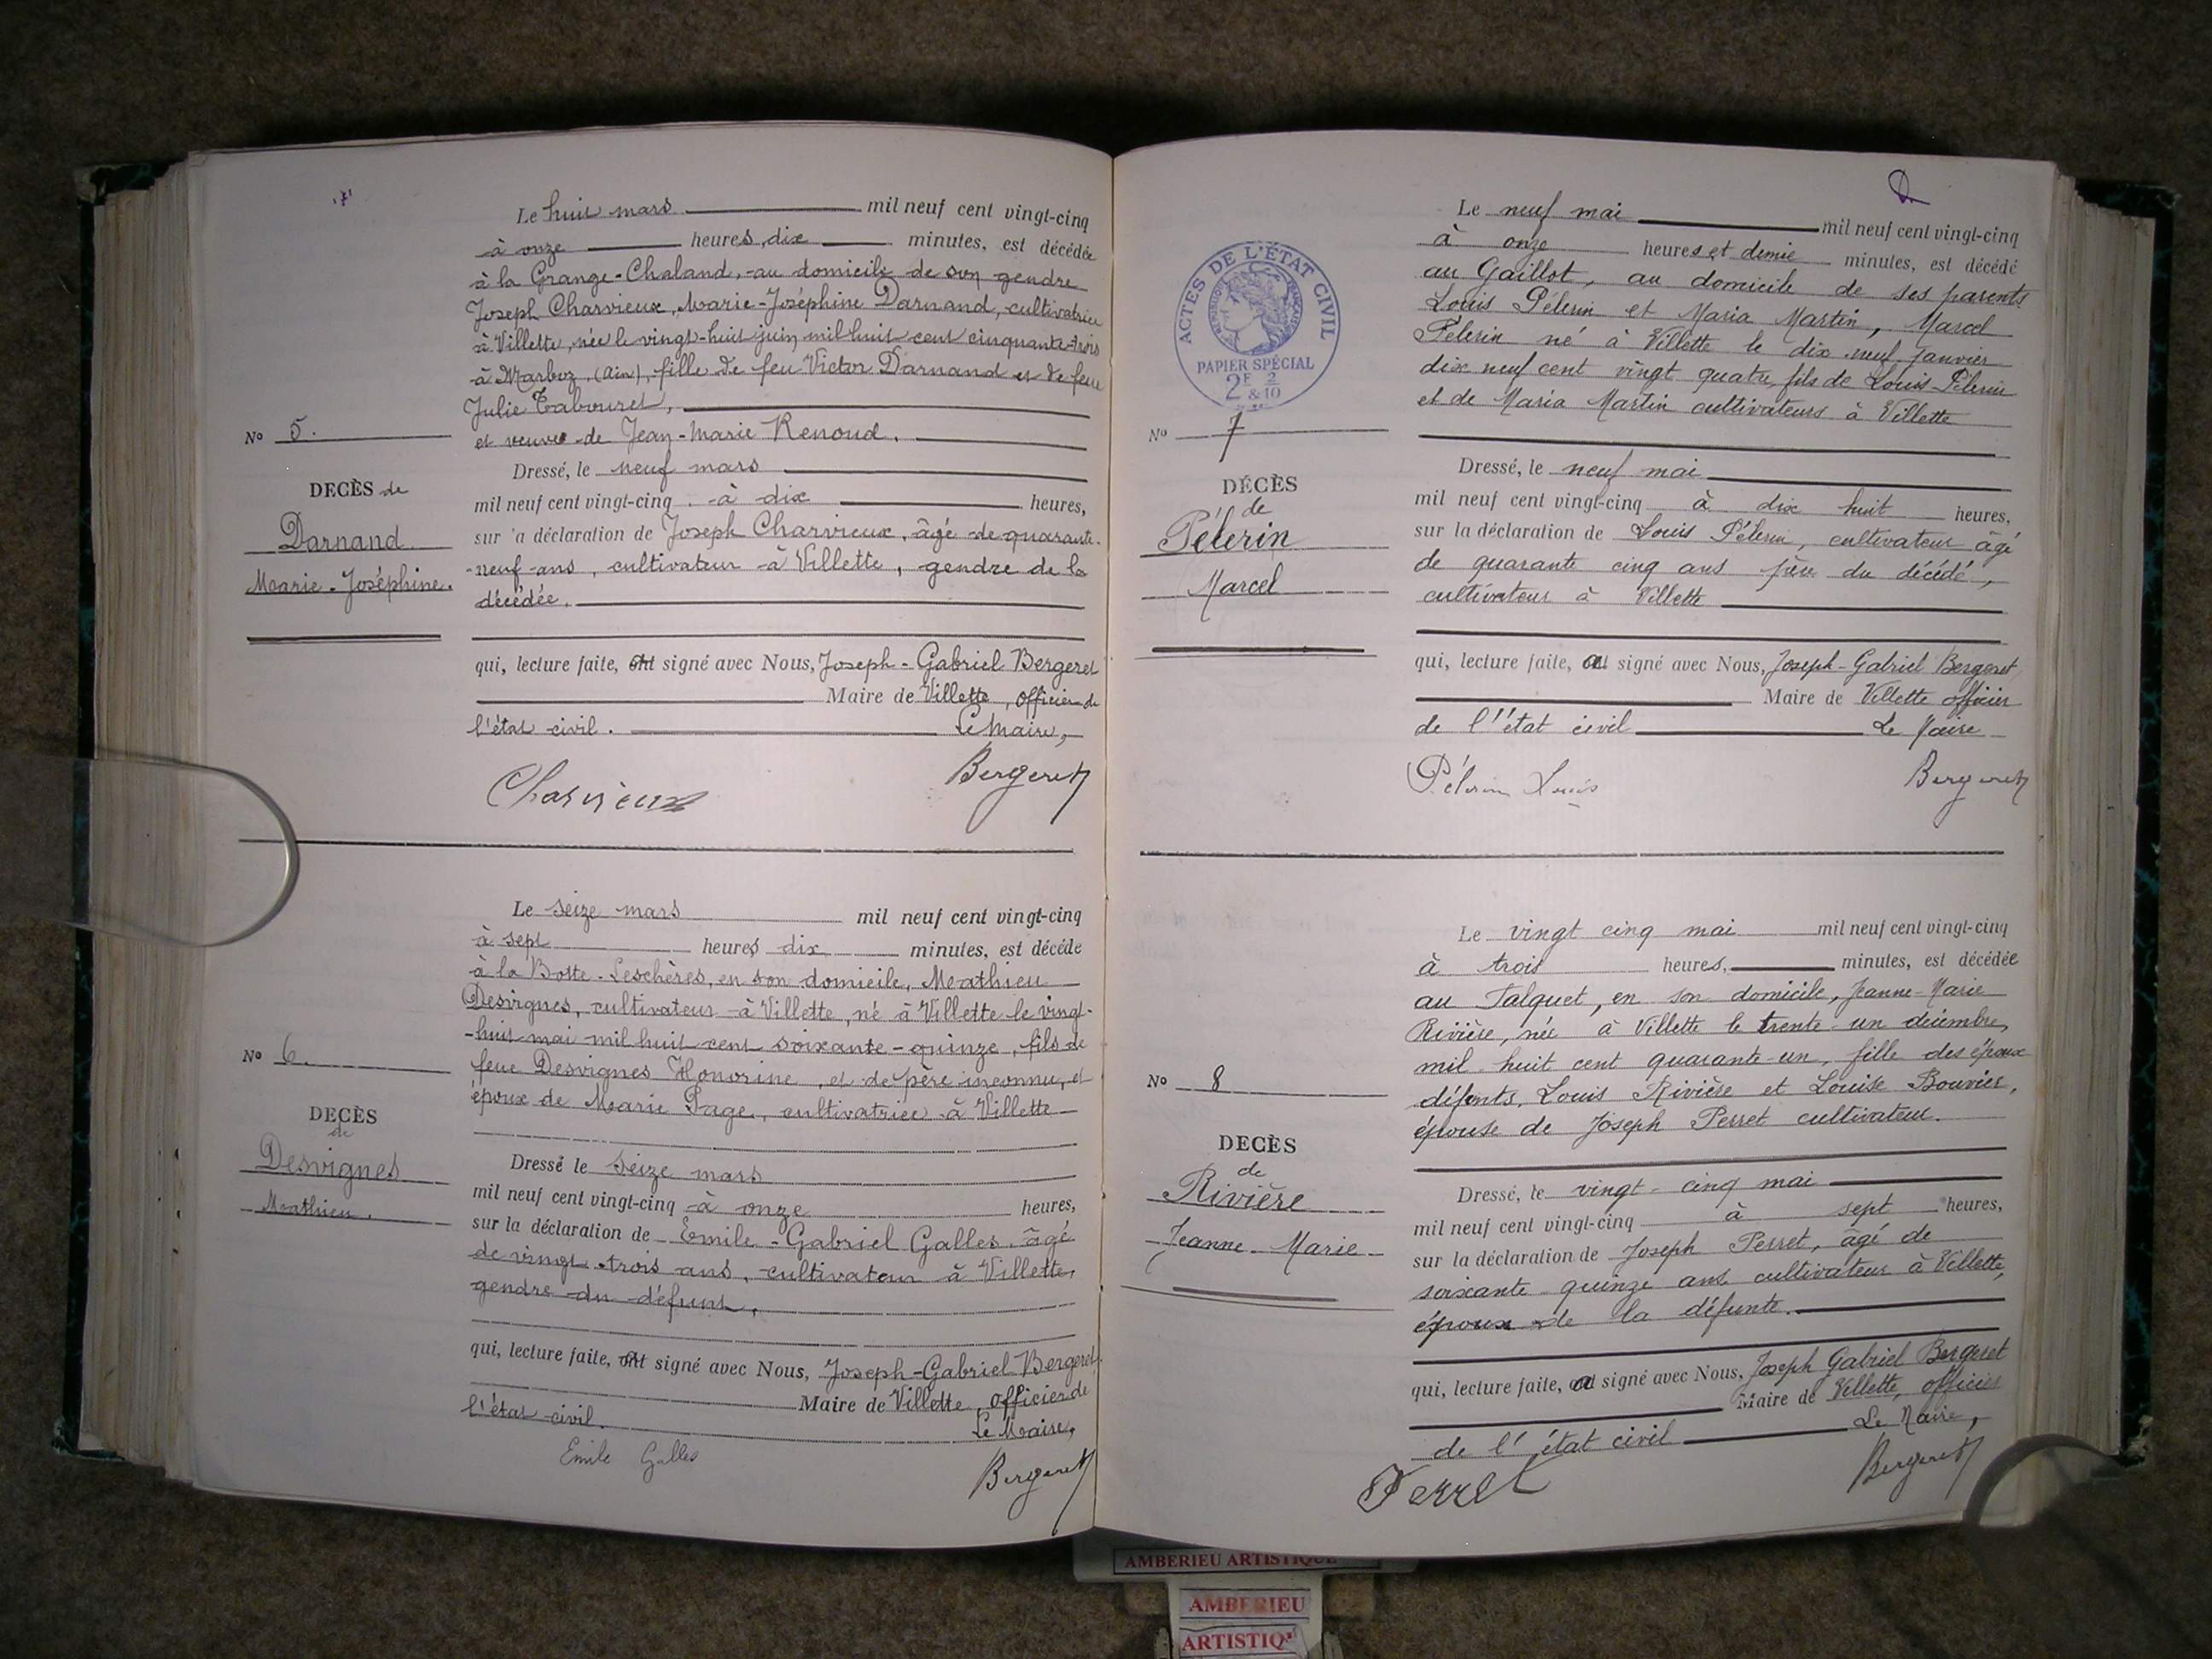 Le huit mars mil neuf cent vingt-cinq
à onze heures dix minutes, est décédée
à la Grange-Chaland, au domicile de son gendre
Joseph Charvieux, Marie-Joséphine Darnand, cultivatrice
à Villette, née le vingt-huit juin mil huit cent cinquante-trois
à Marboz (Ain), fille de feu Victor Darnand et de feue
Julie Tabouret,
et veuve de Jean-Marie Renoud.
No 5.
DECÈS de
Darnand
Marie-Joséphine.
Dressé, le neuf mars
mil neuf cent vingt-cinq à dix heures,
sur la déclaration de Joseph Charvieux, âgé de quarante-
-neuf ans, cultivateur à Villette, gendre de la
décédée.
qui, lecture faite, ont signé avec Nous, Joseph-Gabriel Bergeret
Maire de Villette, officier de
l'état civil. Le Maire,
Charvieux Bergeret
Le seize mars mil neuf cent vingt-cinq
à sept heures dix minutes, est décédé
à la Botte-Leschères, en son domicile, Mathieu
Desvignes, cultivateur à Villette, né à Villette le vingt-
-huit mai mil huit cent soixante-quinze, fils de
feue Desvignes Honorine, et de père inconnu, et
époux de Marie Page, cultivatrice à Villette
No 6.
DECÈS
de
Desvignes
Mathieu.
Dressé le seize mars
mil neuf cent vingt-cinq à onze heures,
sur la déclaration de Emile-Gabriel Galles, âgé
de vingt-trois ans, cultivateur à Villette,
gendre du défunt.
qui, lecture faite, ont signé avec Nous, Joseph-Gabriel Bergeret
Maire de Villette, officier de
l'état civil. Le Maire,
Emile Galles Bergeret
ACTES DE L'ÉTAT CIVIL
PAPIER SPÉCIAL
2F 2/10
& 10
Le neuf mai mil neuf cent vingt-cinq
à onze heures et demie minutes, est décédé
au Gaillot, au domicile de ses parents
Louis Pélerin et Maria Martin, Marcel
Pélerin né à Villette le dix neuf janvier
dix neuf cent vingt quatre, fils de Louis Pélerin
et de Maria Martin cultivateurs à Villette
No 7
DÉCÈS
de
Pélerin
Marcel
Dressé, le neuf mai
mil neuf cent vingt-cinq à dix huit heures,
sur la déclaration de Louis Pélerin, cultivateur âgé
de quarante cinq ans père du décédé,
cultivateur à Villette
qui, lecture faite, a signé avec Nous, Joseph-Gabriel Bergeret
Maire de Villette officier
de l'état civil Le Maire
Pélerin Louis Bergeret
Le vingt cinq mai mil neuf cent vingt-cinq
à trois heures, minutes, est décédée
au Jalquet, en son domicile, Jeanne-Marie
Rivière, née à Villette le trente-un décembre
mil huit cent quarante-un, fille des époux
défunts, Louis Rivière et Louise Bouvier,
épouse de Joseph Perret cultivateur.
No 8
DECÈS
de
Rivière
Jeanne-Marie
Dressé, le vingt-cinq mai
mil neuf cent vingt-cinq à sept heures,
sur la déclaration de Joseph Perret, âgé de
soixante quinze ans cultivateur à Villette,
époux de la défunte.
qui, lecture faite, a signé avec Nous, Joseph Gabriel Bergeret
Maire de Villette, officier
de l'état civil Le Maire,
Perret Bergeret
AMBERIEU ARTISTIQUE
AMBERIEU
ARTISTIQ